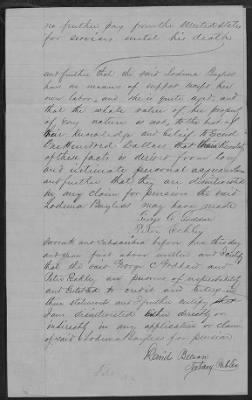 no further pay from the United States
for services until his death
and further that the said Lodema Bayless
has no means of support except her
own labor, and she is quite aged, and
that the whole value of her property
of every nature is not, to the best of
their knowledge and belief to exceed
One Hundred Dollars that their knowledge
of these facts is derived from long
and intimate personal acquaintance
and further that they are disinterested
in any claim for pension the said
Lodema Bayless may have made
George C.
Peter Eckley
Sworn to and subscribed before me this day
and year first above written and I certify
that the said George C. and
Peter Eckley, are persons of respectability
and entitled to credit and belief in
their statements and I further certify that
I am disinterested either directly or
indirectly in any application or claim
of said Lodema Bayless for pension
Daniel
Notary Public